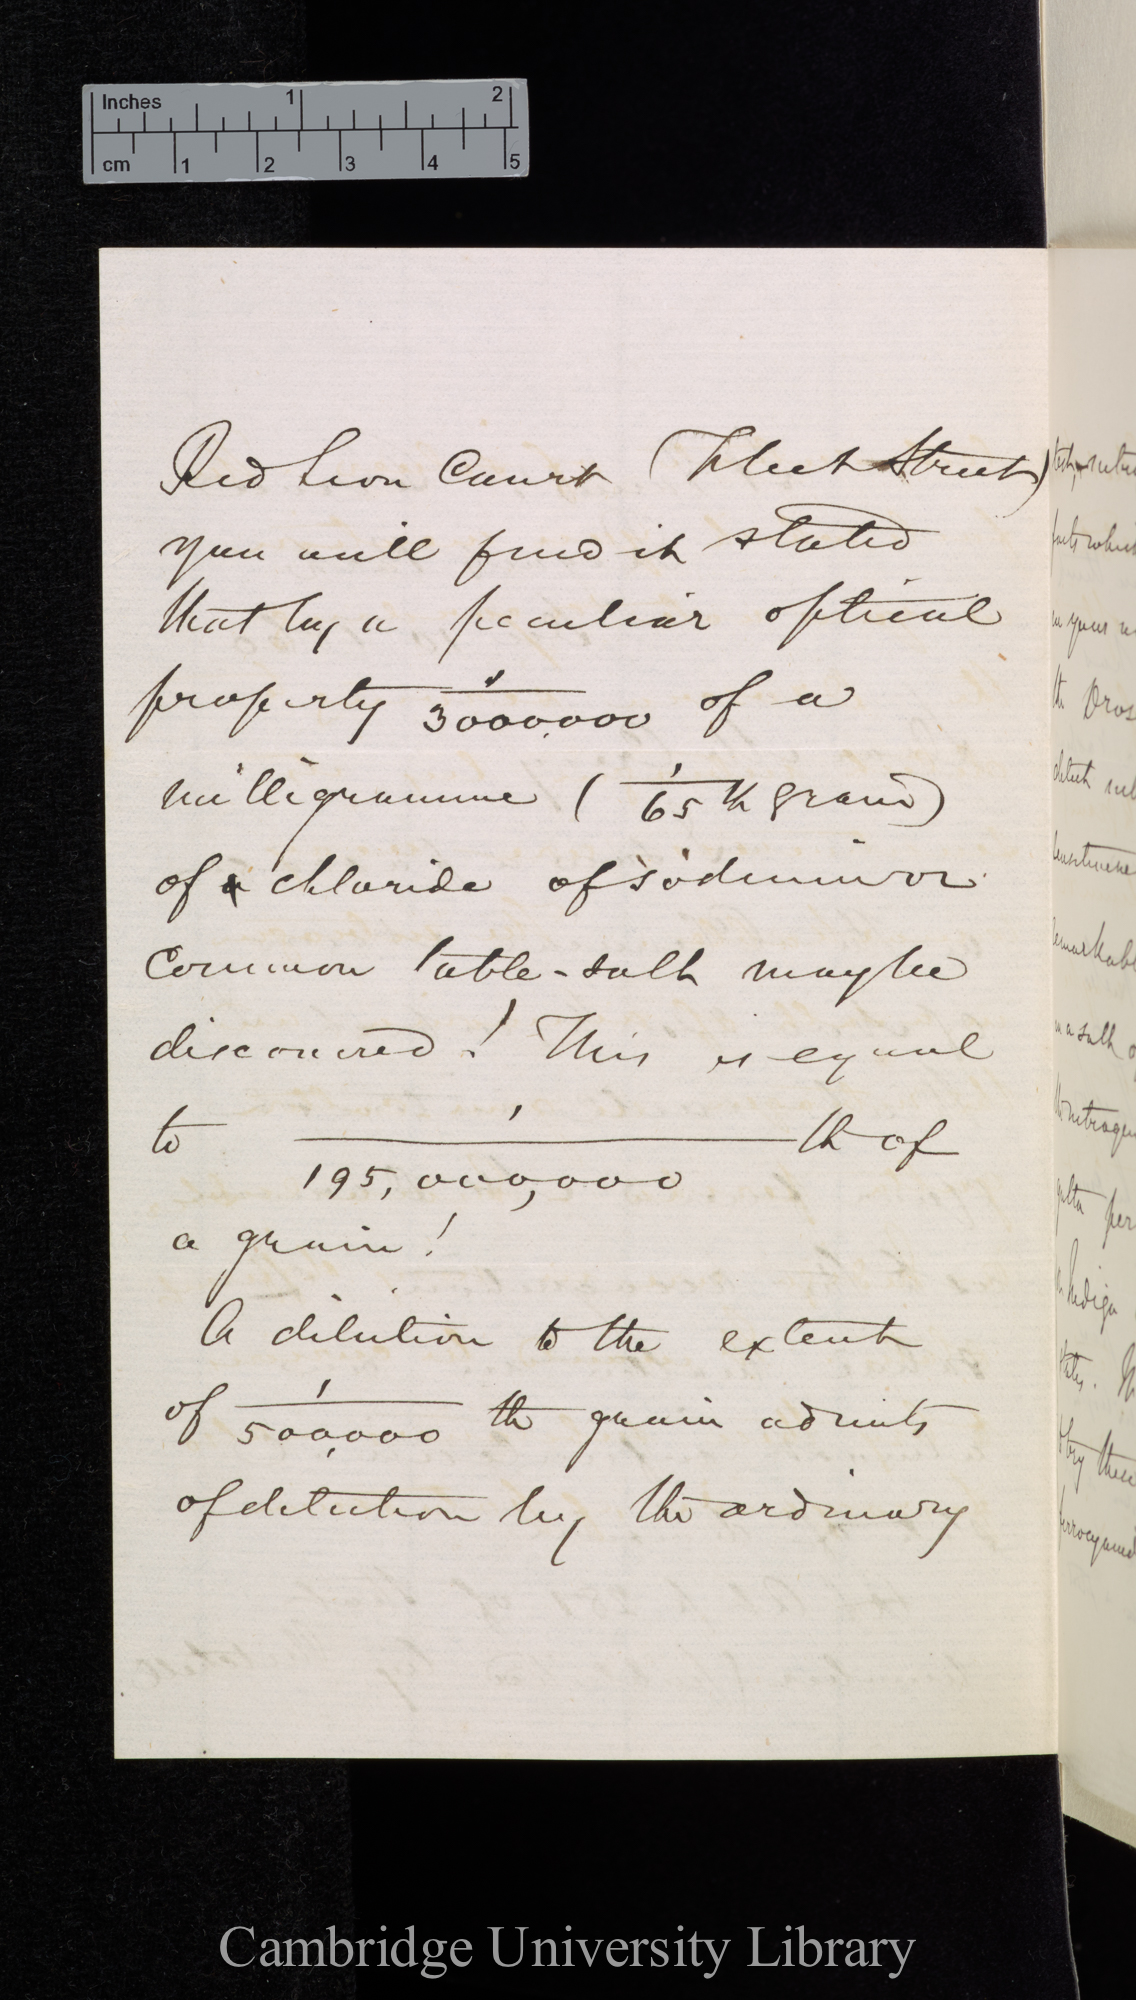 Inches 1 2
cm 1 2 3 4 5
Red Lion Court (Fleet Street)
you will find it stated
that by a peculiar optical
property 1/3000,000 of a
milligramme ( 1/65 th grain)
of chloride of sodium or
common table-salt may be
discovered! This is equal
to 1/195,000,000 th of
a grain!
A dilution to the extent
of 1/500,000 th grain admits
of detection by the ordinary
Cambridge University Library